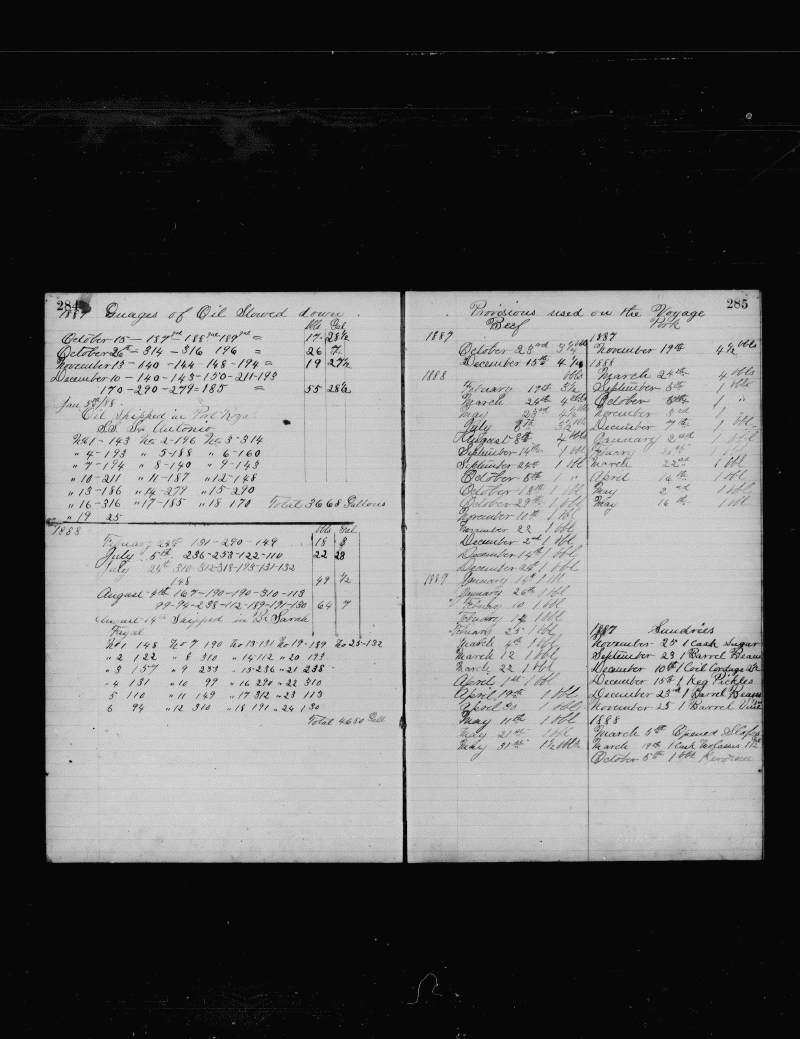 284
1887 Guages of Oil Stowed down
Bbls Gal
October 15 — 187 gal — 188 gal 189 gal = 17 28½
October 26th — 314 — 316 196 = 26 7
November 13 — 140 — 144 — 148 — 194 = 19 27½
December 10 — 140 — 143 — 150 — 211 — 193
170 — 290 — 279 — 185 = 55 28½
Jan 5th/88
Oil Shipped in Port Royal
S.S. San Antonio
No 1 — 143 No 2 — 196 No 3 — 314
" 4 — 193 " 5 — 188 " 6 — 160
" 7 — 194 " 8 — 140 " 9 — 143
" 10 — 211 " 11 — 187 " 12 — 148
" 13 — 186 " 14 — 279 " 15 — 290
" 16 — 316 " 17 — 185 " 18 170 Total 3668 Gallons
" 19 25
1888 Bbls Gal
February 28th 131 — 290 — 149 18 3
July 5th 236 — 253 — 122 — 110 22 28
July 25th 310 — 312 — 318 — 193 — 131 — 132
148 49 ½
August 4th 167 — 190 — 190 — 310 — 113
99 — 94 — 238 — 112 — 189 — 191 — 130 64 7
August 14th Shipped in Bk Sarah
Fayal
No 1 148 No 7 190 No 13 — 131 No 19 — 189 No 25 — 132
" 2 122 " 8 310 " 14 — 112 " 20 193
" 3 157 " 9 253 " 15 — 236 " 21 238
" 4 131 " 10 99 " 16 290 " 22 310
5 110 " 11 149 " 17 312 " 23 113
6 94 " 12 310 " 18 191 " 24 130
Total 4650 Gall
285
Provisions used on the Voyage
Beef
1887
October 23rd 3¼ bbls
December 15th 4¼
1888 bbls
February 17th 3½
March 24th 4 bbls
May 23rd 4½ bbls
July 8th 3½ bbls
August 8th 4 bbls
September 14th 1 bbl
September 24th 1 bbl
October 8th 1 "
October 18th 1 bbl
October 29th 1 bbl
November 10th 1 bbl
November 22 1 bbl
December 2nd 1 bbl
December 14th 1 bbl
December 24th 1 bbl
1889 January 14th 1 bbl
January 26th 1 bbl
February 10 1 bbl
February 14 1 bbl
February 25 1 bbl
March 4th 1 bbl
March 12 1 bbl
March 22 1 bbl
April 1st 1 bbl
April 19th 1 bbl
April 30 1 bbl
May 11th 1 bbl
May 21th 1 bbl
May 31th 1½ bbls
Pork
1887
November 19th 4½ bbls
1888
March 24th 4 bbls
September 8th 1 bbls
October 8th 1 "
November 3rd 1 "
December 7th 1 bbl
January 2nd 1 bbl
February 1 bbl
March 22nd 1 bbl
April 16th 1 bbl
May 2nd 1 bbl
May 16th 1 bbl
1887 Sundries
November 25 1 Cask Sugar
September 23 1 Barrel Beans
December 10th 1 Coil Cordage
December 15th 1 Keg Pickles
December 23rd 1 Barrel Beans
November 25 1 Barrel
1888
March 5th Opened Slops
March 19th 1 Cask Molasses
October 5th 1 bbl Kerosene